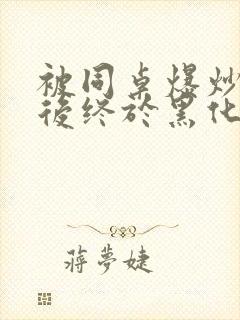 被同桌爆炒
後终於黑化
蔣夢婕